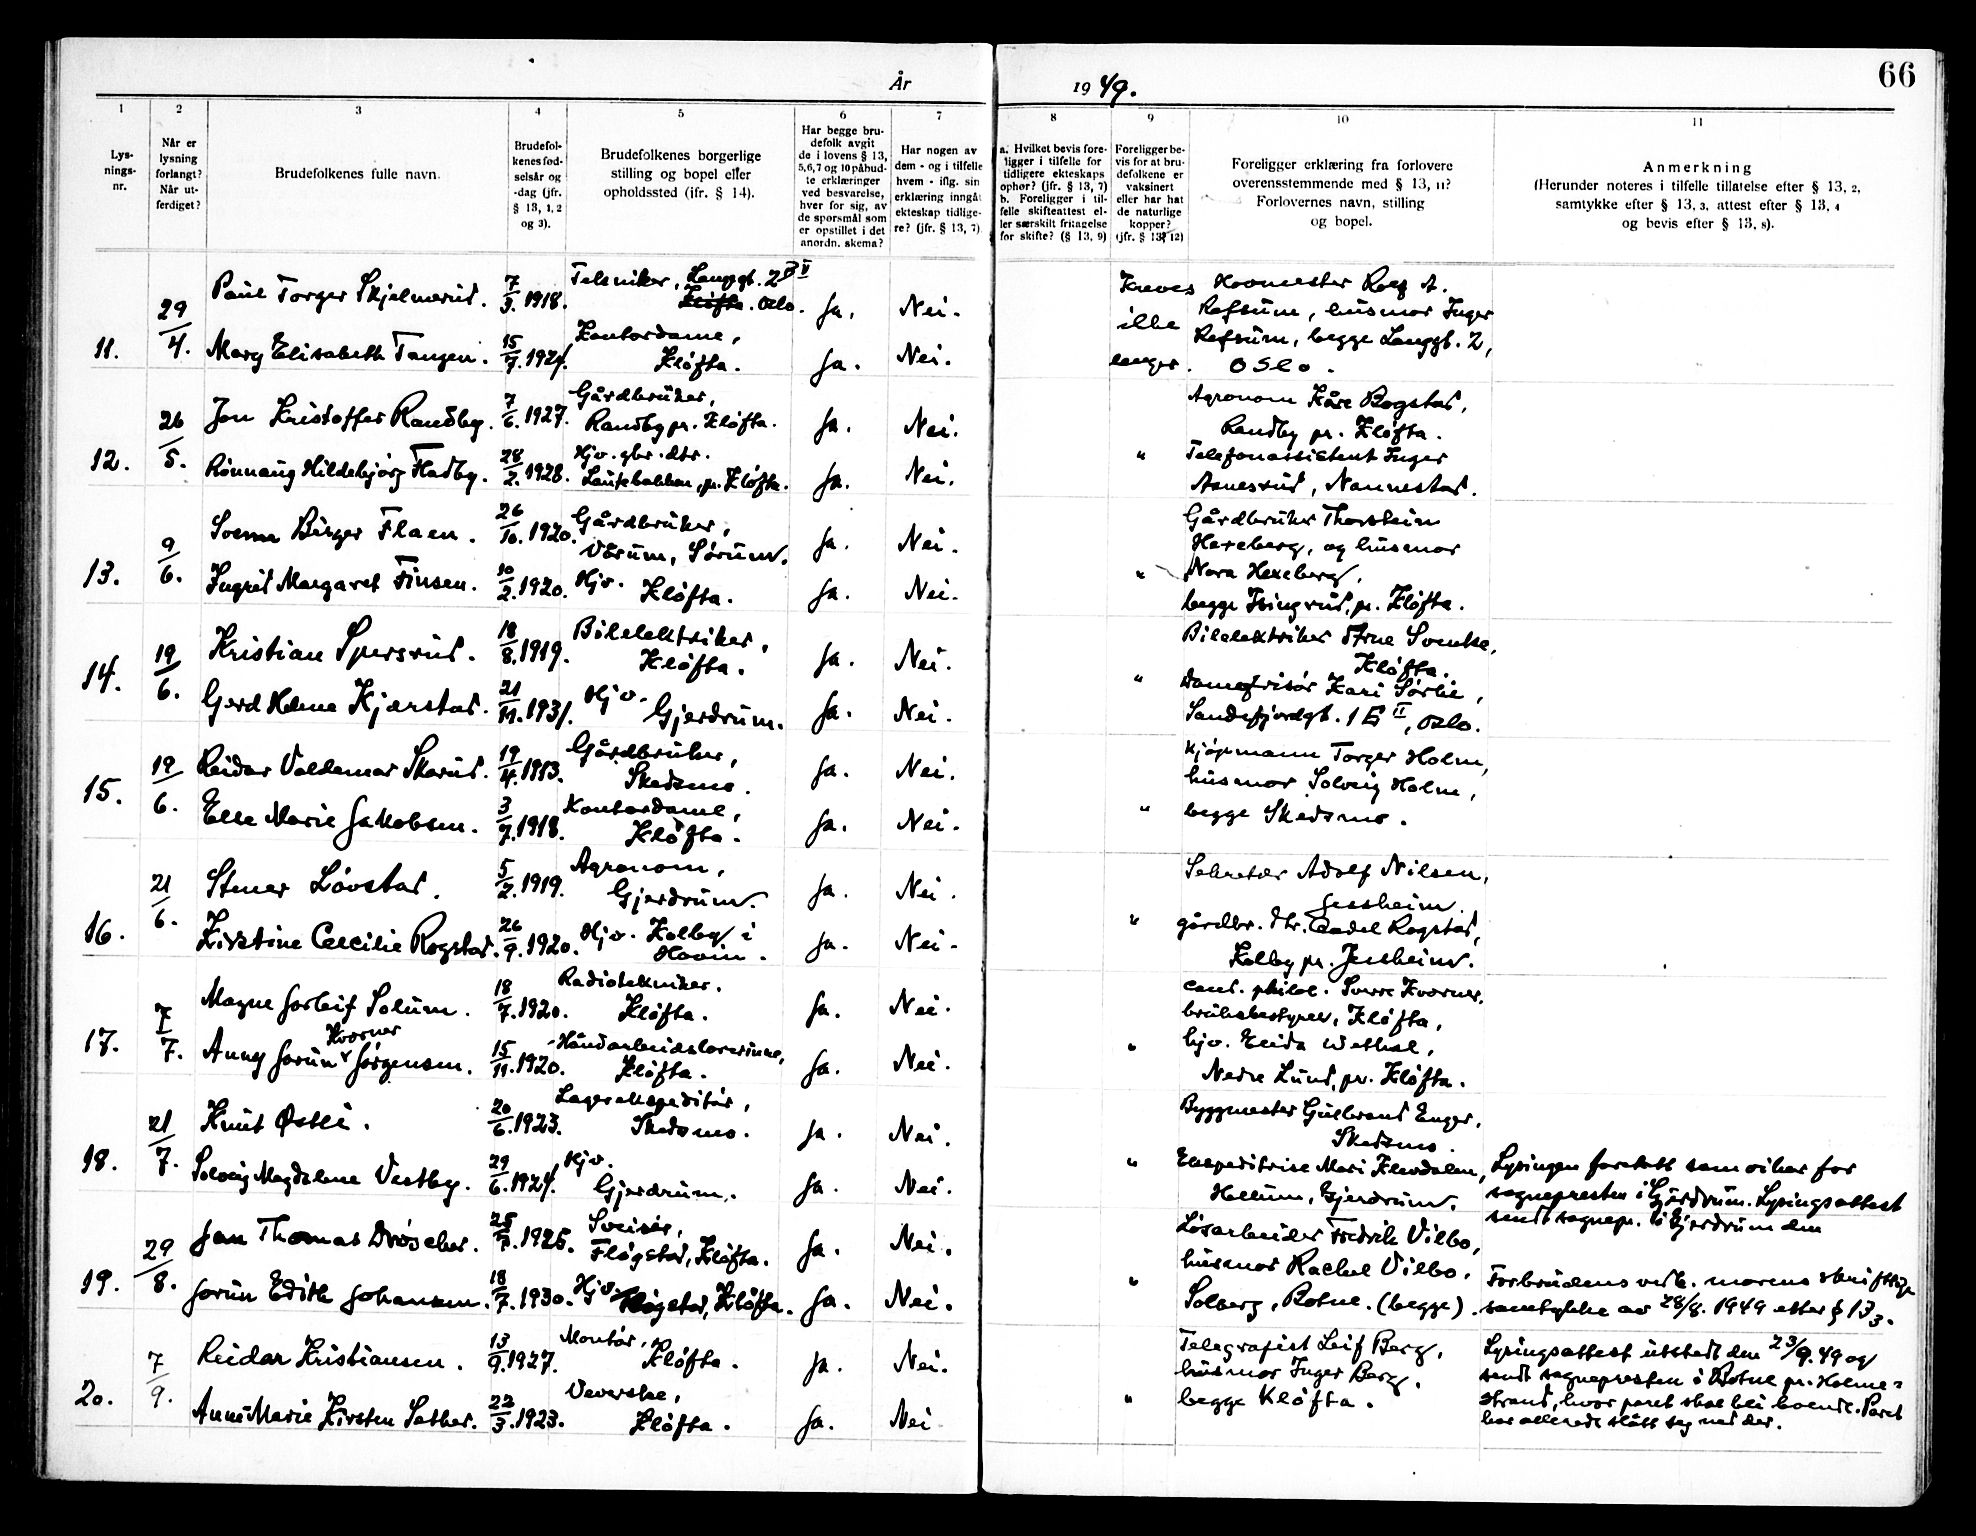 66
År 1949.
1 2 3 4 5 6 7 8 9 10 11
Lys-
nings-
nr.
Når er
lysning
forlangt?
Når ut-
ferdiget?
Brudefolkenes fulle navn.
Brudefol-
kenes fød-
selsår og
-dag (jfr.
§ 13, 1, 2
og 3).
Brudefolkenes borgerlige
stilling og bopel eller
opholdssted (ifr. § 14).
Har begge bru-
defolk avgit
de i lovens § 13,
5,6,7 og 10 påbud-
te erklæringer
ved besvarelse,
hver for sig, av
de spørsmål som
er opstillet i det
anordn. skema?
Har nogen av
dem - og i tilfelle
hvem - iflg. sin
erklæring inngåt
ekteskap tidlige-
re? (jfr. § 13, 7)
a. Hvilket bevis fore-
ligger i tilfelle for
tidligere ekteskaps
ophør? (jfr. § 13, 7)
b. Foreligger i til-
felle skifteattest el-
ler særskilt fritagelse
for skifte? (§ 13, 9)
Foreligger be-
vis for at bru-
defolkene er
vaksinert
eller har hat
de naturlige
kopper?
(jfr. § 13, 12)
Foreligger erklæring fra forlovere
overensstemmende med § 13, 11?
Forlovernes navn, stilling
og bopel.
Anmerkning
(Herunder noteres i tilfelle tillatelse efter § 13, 2,
samtykke efter § 13, 3, attest efter § 13, 4
og bevis efter § 13, 8).
11. 29/4.
Paul Torger Skjelmerud. 7/3. 1918. Tekniker, Langgt. 2 B V
Kløfta. Oslo. Ja. Nei.
Mary Elisabeth Tangen. 15/7. 1924. Kontordame,
Kløfta. Ja. Nei.
Kreves
ikke
lenger.
Hovmester Rolf A.
Refsum, husmor Inger
Refsum, begge Langgt. 2,
Oslo.
12. 26/5.
Jon Kristoffer Randby. 7/6. 1927. Gårdbruker,
Randby pr. Kløfta. Ja. Nei.
Rønnaug Hildebjørg Fladby. 28/2. 1928. Hjv. gbr. dtr.
pr. Kløfta. Ja. Nei.
" Agronom Kåre Bogstad,
Randby pr. Kløfta.
Telefonassistent Inger
Aanesrud, Nannestad.
13. 9/6.
Svenn Birger Flaen. 26/10. 1920. Gårdbruker,
Vårum, Sørum. Ja. Nei.
Ingrid Margaret Finsen. 10/2. 1920. Hjv. Kløfta. Ja. Nei.
" Gårdbruker Thorstein
Hexeberg, og husmor
Nora Hexeberg,
begge pr. Kløfta.
14. 19/6.
Kristian Spersrud. 18/8. 1919. Bilelektriker,
Kløfta. Ja. Nei.
Gerd Helene Kjærstad. 21/11. 1931. Hjv.
Gjerdrum. Ja. Nei.
" Bilelektriker Arne Svenke,
Kløfta.
Damefrisør Kari Sørlie,
Sandefjordgt. 1 E II, Oslo.
15. 19/6.
Reidar Valdemar Skarud. 19/4. 1913. Gårdbruker,
Skedsmo. Ja. Nei.
Elle Marie Jakobsen. 3/7. 1918. Kontordame,
Kløfta. Ja. Nei.
" Kjøpmann Torger Holm,
husmor Solveig Holm,
begge Skedsmo.
16. 21/6.
Stener Løvstad. 5/2. 1919. Agronom,
Gjerdrum. Ja. Nei.
Kirstine Cecilie Rogstad. 26/9. 1920. Hjv. Kolby i
Hovin. Ja. Nei.
" Sekretær Adolf Nilsen,
Jessheim.
gårdbr. dtr. Rogstad,
Kolby pr. Jessheim.
17. 7/7.
Magne Jorleif Solum. 18/7. 1920. Radiotekniker.
Kløfta. Ja. Nei.
Kvorner
Anny Jorun Jørgensen. 15/11. 1920. Håndarbeidslærerinne,
Kløfta. Ja. Nei.
" cand. philol. Sverre Kvorner,
Kløfta,
hjv. Elida Wethal,
Nedre Lund, pr. Kløfta.
18. 21/7.
Knut Østli. 20/6. 1923. Lagerekspeditør,
Skedsmo. Ja. Nei.
Solveig Magdalene Vestby. 29/6. 1924. Hjv.
Gjerdrum. Ja. Nei.
" Byggmester Gulbrand Enger,
Skedsmo.
Ekspeditrise Mari
Hellum, Gjerdrum.
Lysingen foretatt som vikar for
sognepresten i Gjerdrum. Lysingsattest
sendt sognepr. i Gjerdrum den
19. 29/8.
Jan Thomas Drøscher. 25/7. 1925. Sveiser,
Fløgstad, Kløfta. Ja. Nei.
Jorun Edith Johansen. 18/7. 1930. Hjv. Fløgstad, Kløfta. Ja. Nei.
" Løsarbeider Fredrik Vilbo,
husmor Rachel Vilbo,
Solberg, Botne. (begge).
Forbrudens vedk. morens skriftlige
samtykke av 28/8. 1949 etter § 13 3.
20. 7/9.
Reidar Kristiansen. 13/9. 1927. Montør,
Kløfta. Ja. Nei.
Anne Marie Kirsten Sæther. 22/3. 1923. Veverske,
Kløfta. Ja. Nei
" Telegrafist Leif Berg,
husmor Inger Berg,
begge Kløfta.
Lysingsattest utstedt den 23/9. 49 og
sendt sognepresten i Botne pr. Holme-
strand, hvor paret skal bli boende. Paret
har allerede slått seg ned der.